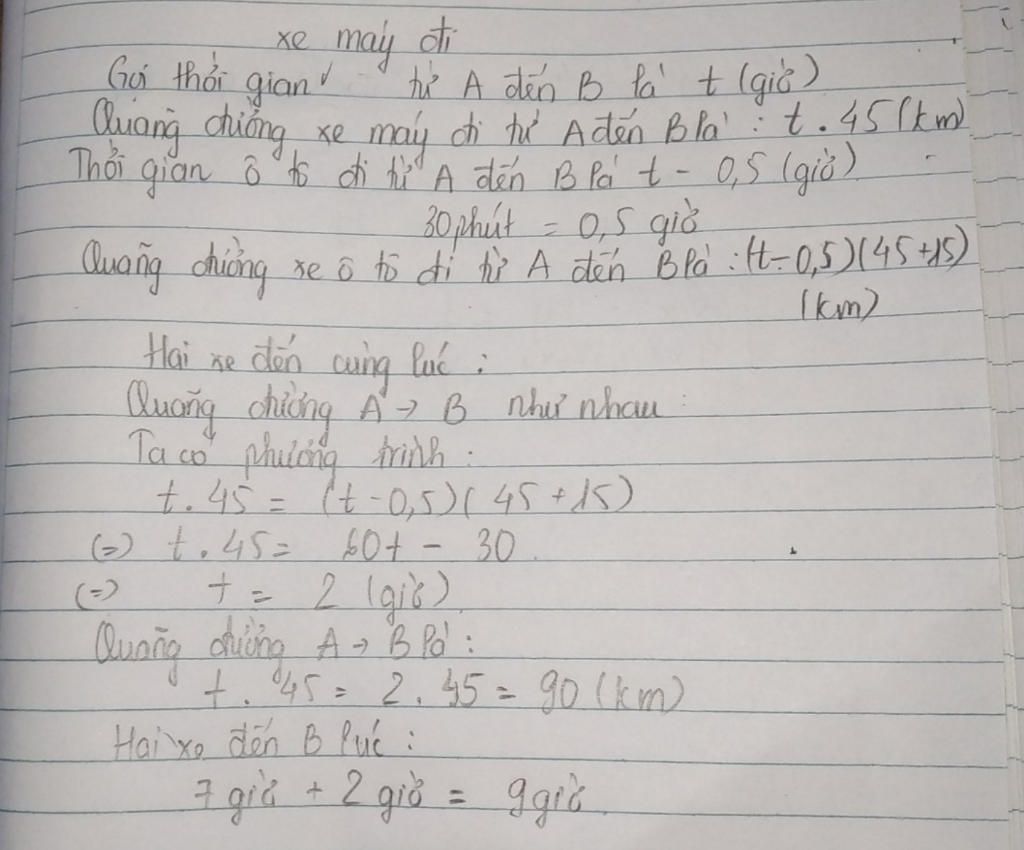 xe máy đi
Gọi thời gian từ A đến B là t (giờ)
Quãng đường xe máy đi từ A đến B là : t . 45 (km)
Thời gian ô tô đi từ A đến B là t - 0,5 (giờ)
30 phút = 0,5 giờ
Quãng đường xe ô tô đi từ A đến B là : (t - 0,5)(45+15)
(km)
Hai xe đến cùng lúc :
Quãng đường A → B như nhau :
Ta có phương trình :
t . 45 = (t - 0,5)( 45 + 15)
(=) t . 45 = 60t - 30
(=) t = 2 (giờ)
Quãng đường A → B là :
t . 45 = 2 . 45 = 90 (km)
Hai xe đến B lúc :
7 giờ + 2 giờ = 9 giờ